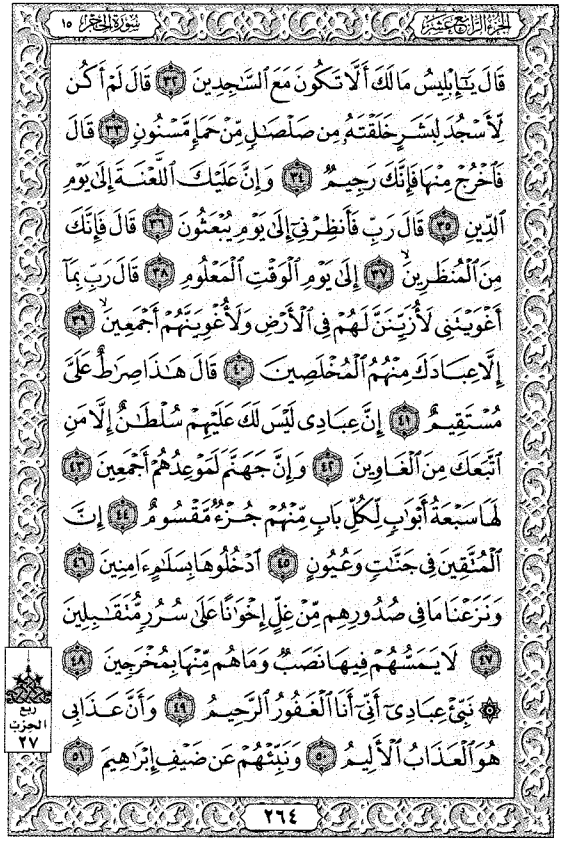 الجزء الرابع عشر
سورة الحجر ١٥
قَالَ يَٰٓإِبۡلِيسُ مَا لَكَ أَلَّا تَكُونَ مَعَ ٱلسَّٰجِدِينَ ٣٢ قَالَ لَمۡ أَكُن
لِّأَسۡجُدَ لِبَشَرٍ خَلَقۡتَهُۥ مِن صَلۡصَٰلٖ مِّنۡ حَمَإٖ مَّسۡنُونٖ ٣٣ قَالَ
فَٱخۡرُجۡ مِنۡهَا فَإِنَّكَ رَجِيمٞ ٣٤ وَإِنَّ عَلَيۡكَ ٱللَّعۡنَةَ إِلَىٰ يَوۡمِ
ٱلدِّينِ ٣٥ قَالَ رَبِّ فَأَنظِرۡنِيٓ إِلَىٰ يَوۡمِ يُبۡعَثُونَ ٣٦ قَالَ فَإِنَّكَ
مِنَ ٱلۡمُنظَرِينَ ٣٧ إِلَىٰ يَوۡمِ ٱلۡوَقۡتِ ٱلۡمَعۡلُومِ ٣٨ قَالَ رَبِّ بِمَآ
أَغۡوَيۡتَنِي لَأُزَيِّنَنَّ لَهُمۡ فِي ٱلۡأَرۡضِ وَلَأُغۡوِيَنَّهُمۡ أَجۡمَعِينَ ٣٩
إِلَّا عِبَادَكَ مِنۡهُمُ ٱلۡمُخۡلَصِينَ ٤٠ قَالَ هَٰذَا صِرَٰطٌ عَلَيَّ
مُسۡتَقِيمٌ ٤١ إِنَّ عِبَادِي لَيۡسَ لَكَ عَلَيۡهِمۡ سُلۡطَٰنٌ إِلَّا مَنِ
ٱتَّبَعَكَ مِنَ ٱلۡغَاوِينَ ٤٢ وَإِنَّ جَهَنَّمَ لَمَوۡعِدُهُمۡ أَجۡمَعِينَ ٤٣
لَهَا سَبۡعَةُ أَبۡوَٰبٖ لِّكُلِّ بَابٖ مِّنۡهُمۡ جُزۡءٞ مَّقۡسُومٌ ٤٤ إِنَّ
ٱلۡمُتَّقِينَ فِي جَنَّٰتٖ وَعُيُونٍ ٤٥ ٱدۡخُلُوهَا بِسَلَٰمٍ ءَامِنِينَ ٤٦
وَنَزَعۡنَا مَا فِي صُدُورِهِم مِّنۡ غِلٍّ إِخۡوَٰنًا عَلَىٰ سُرُرٖ مُّتَقَٰبِلِينَ
٤٧ لَا يَمَسُّهُمۡ فِيهَا نَصَبٞ وَمَا هُم مِّنۡهَا بِمُخۡرَجِينَ ٤٨
۞ نَبِّئۡ عِبَادِيٓ أَنِّيٓ أَنَا ٱلۡغَفُورُ ٱلرَّحِيمُ ٤٩ وَأَنَّ عَذَابِي
هُوَ ٱلۡعَذَابُ ٱلۡأَلِيمُ ٥٠ وَنَبِّئۡهُمۡ عَن ضَيۡفِ إِبۡرَٰهِيمَ ٥١
ربع
الحزب
٢٧
٢٦٤